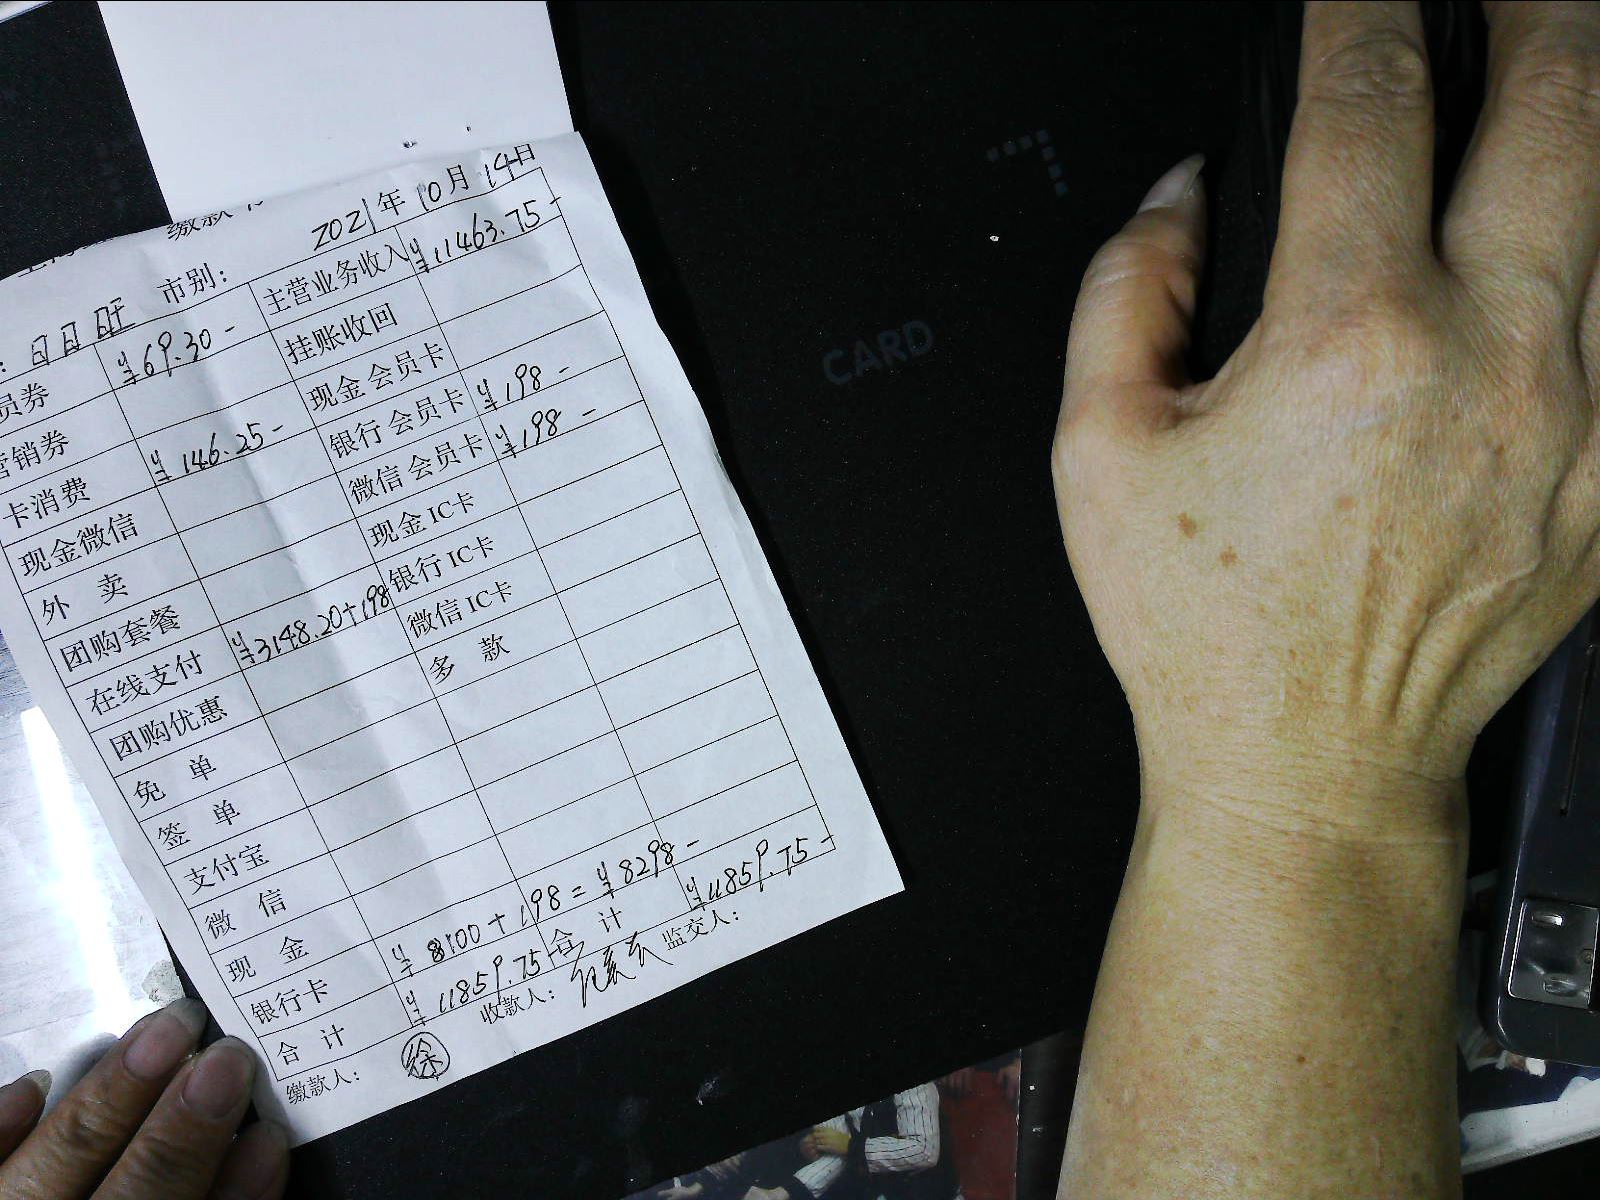 缴款
2021年10月14日
日日旺 市别:
员券 ¥69.30- 主营业务收入 ¥11463.75-
营销券 挂账收回
卡消费 ¥146.25- 现金 会员卡
现金微信 银行 会员卡 ¥198-
外 卖 微信 会员卡 ¥198-
团购套餐 现金 IC卡
在线支付 ¥3148.20+198 银行 IC卡
团购优惠 微信 IC卡
免 单 多 款
签 单
支付宝
微 信
现 金
银行卡 ¥8100+198=¥8298-
合 计 ¥11859.75- 合 计 ¥11859.75-
缴款人: 徐 收款人: 监交人:
CARD